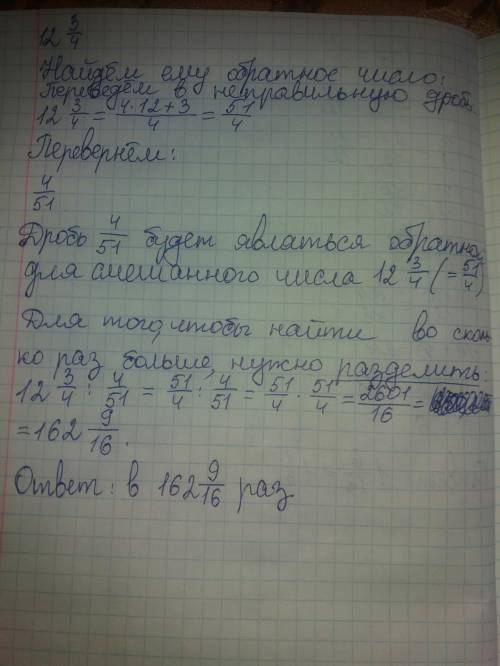 12 3/4
Найдём ему обратное число:
Переведём в неправильную дробь
12 3/4 = 4·12+3/4 = 51/4
Перевернём:
4/51
Дробь 4/51 будет являться обратной
для смешанного числа 12 3/4 (= 51/4)
Для того, чтобы найти во сколь
ко раз больше, нужно разделить
12 3/4 : 4/51 = 51/4 : 4/51 = 51/4 · 51/4 = 2601/16 =
= 162 9/16.
Ответ: в 162 9/16 раз